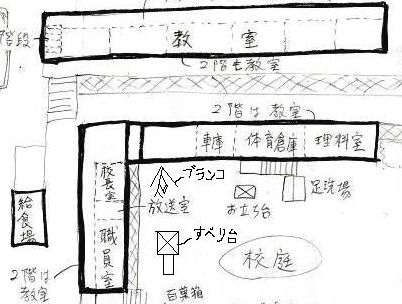 階段
教室
2階も教室
2階は教室
車庫
体育倉庫
理科室
校長室
ブランコ
足洗場
放送室
お立ち台
給食場
職員室
すべり台
校庭
2階は
教室
百葉箱